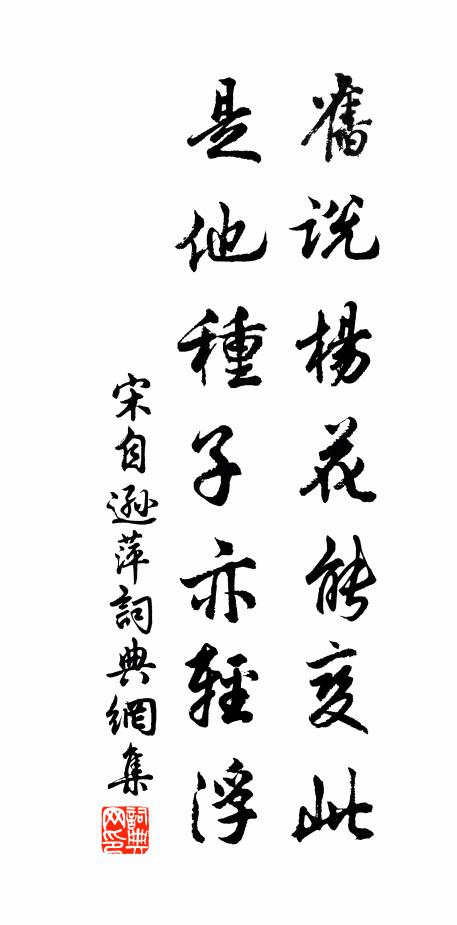 舊說楊花能变此
是他種子亦輕浮
宋自遜萍詞典網集
詞典網印